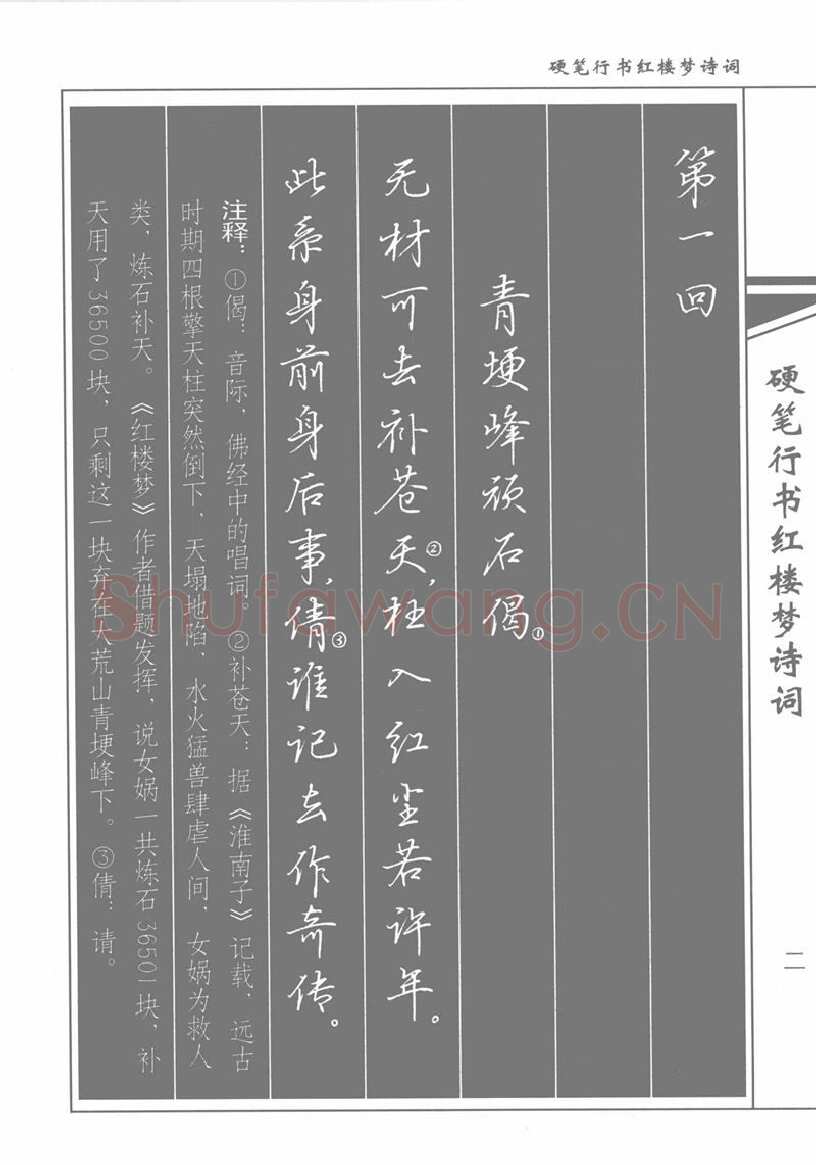 硬笔行书红楼梦诗词
第一回
青埂峰顽石偈①
无材可去补苍天②，枉入红尘若许年。
此系身前身后事，倩③谁记去作奇传。
注释：①偈：音际，佛经中的唱词。②补苍天：据《淮南子》记载，远古
时期四根擎天柱突然倒下，天塌地陷，水火猛兽肆虐人间，女娲为救人
类，炼石补天。《红楼梦》作者借题发挥，说女娲一共炼石36501块，补
天用了36500块，只剩这一块弃在大荒山青埂峰下。③倩：请。
硬笔行书红楼梦诗词
二
Shufawang.CN